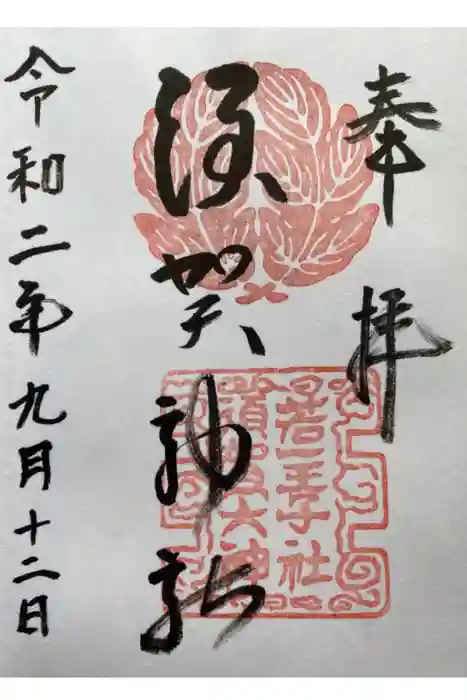 奉拝
須賀神社
若一王子社
大神
令和二年九月十二日